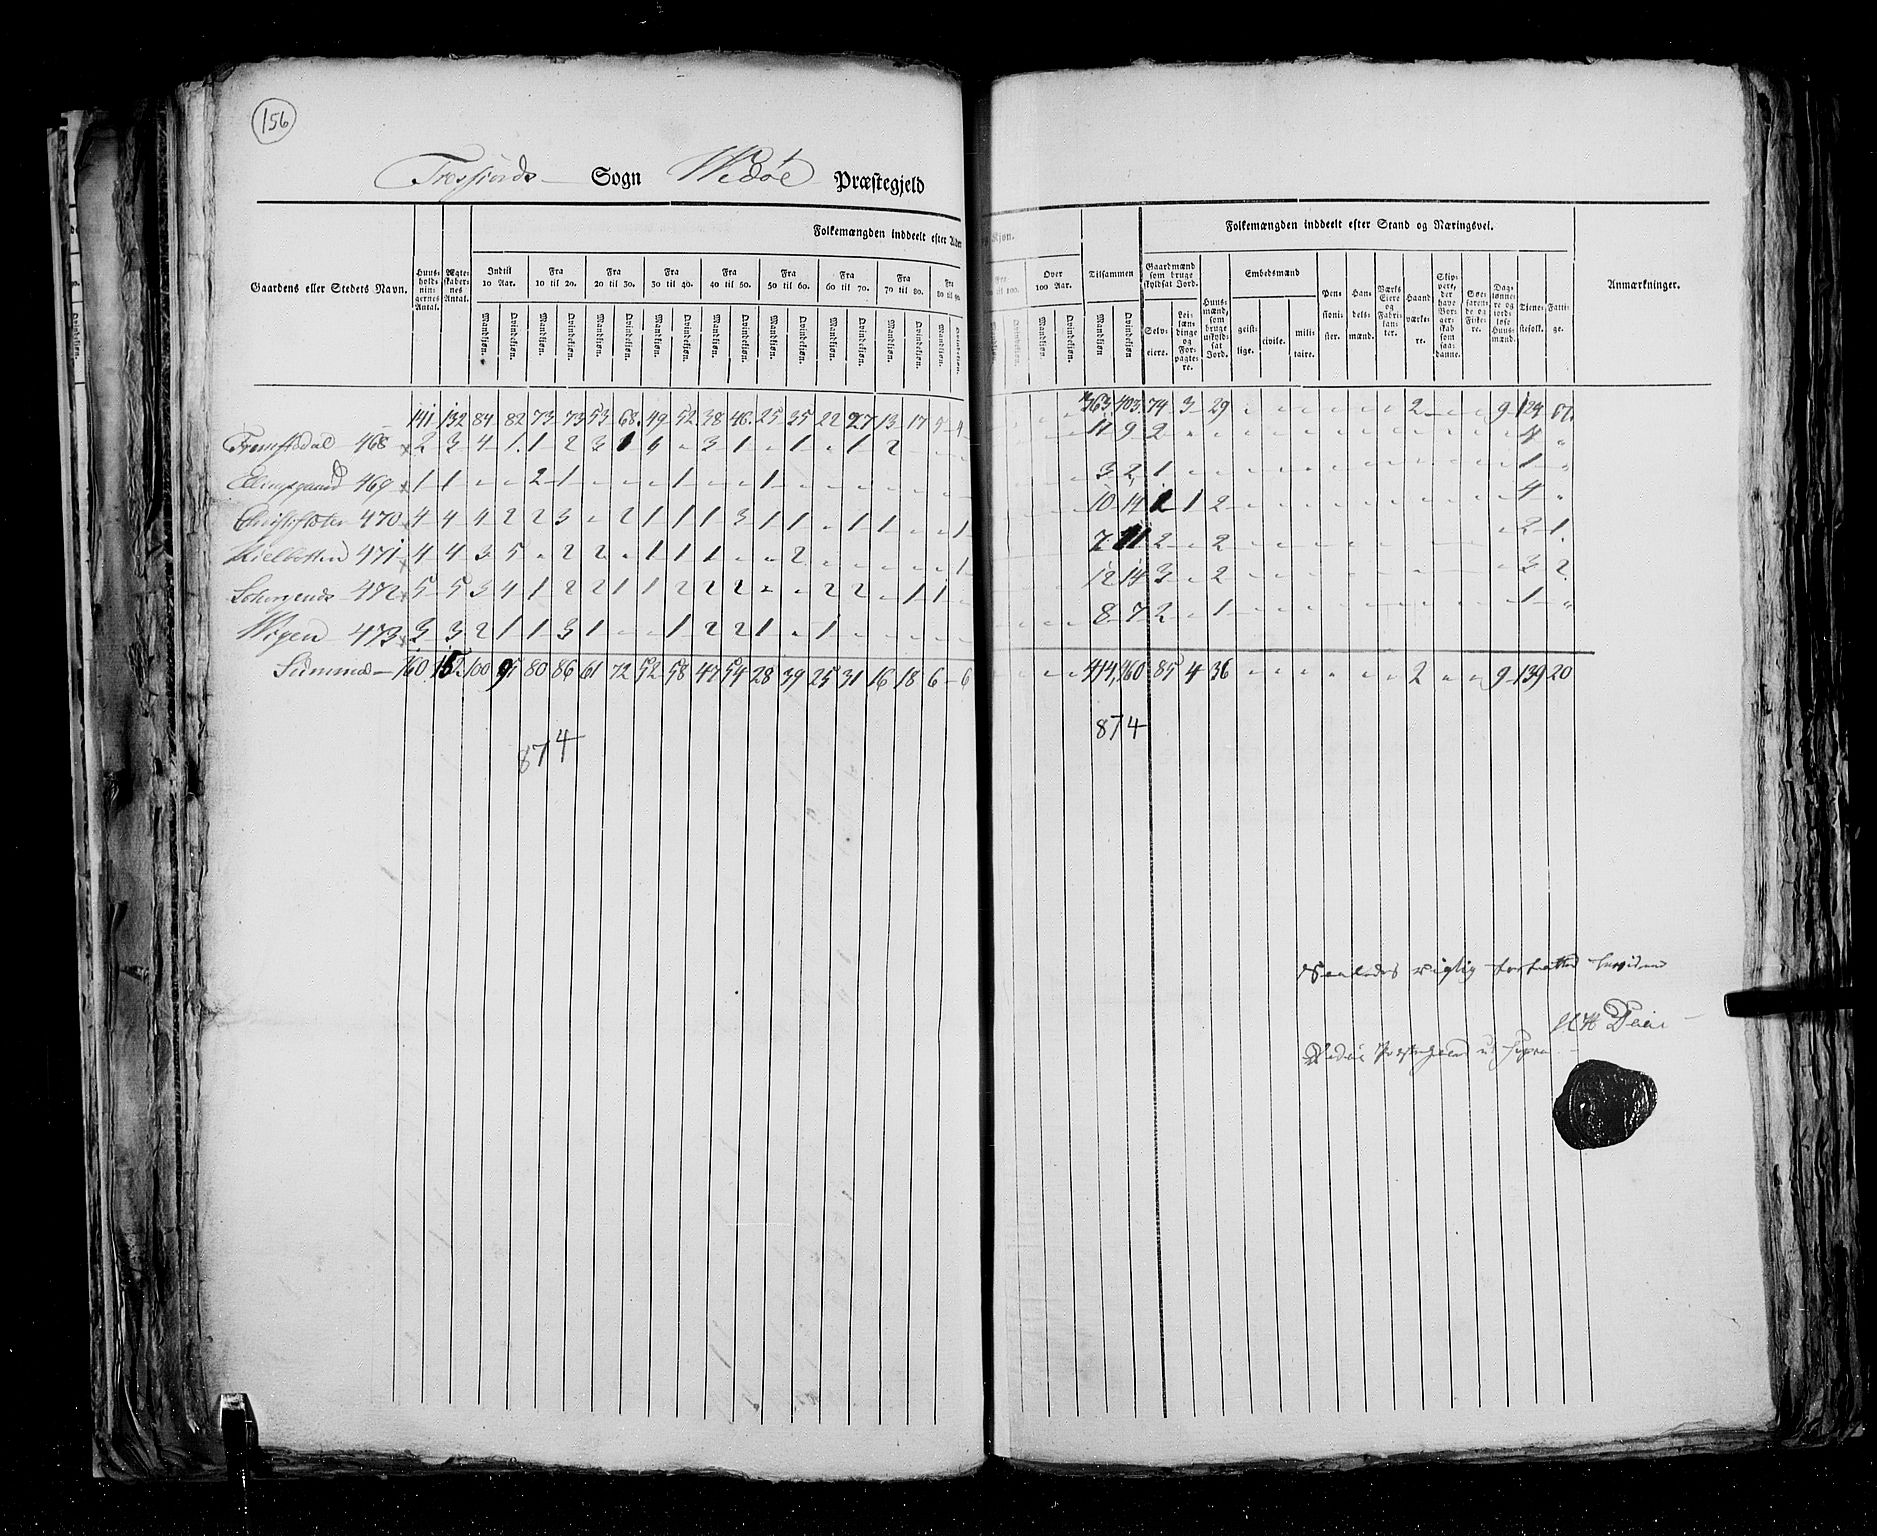 156
Tresfjords Sogn Wedøe Præstegjeld
Folkemængden inddeelt efter Alder og Kjøn. Folkemængden inddeelt efter Stand og Næringsvei.
Gaardens eller Stedets Navn. Huusholdningernes Antal. Ægteskabernes Antal. Indtil 10 Aar. Fra 10 til 20. Fra 20 til 30. Fra 30 til 40. Fra 40 til 50. Fra 50 til 60. Fra 60 til 70. Fra 70 til 80. Fra 80 til 90. Fra til 100. Over 100 Aar. Tilsammen Gaardmænd som bruge skyldsat Jord. Huusmænd, som bruge uskyldsat Jord. Embedsmænd Pensionister. Handelsmænd. Værks Eiere og Fabrikanter. Haandværkere. Skippere, der have Borgerskab som saadanne. Søefarende og Fiskere. Daglønnere og jordløse Huusmænd. Tienestefolk. Fattige. Anmærkninger.
Mandkjøn. Qvindekjøn. Mandkjøn. Qvindekjøn. Mandkjøn. Qvindekjøn. Mandkjøn. Qvindekjøn. Mandkjøn. Qvindekjøn. Mandkjøn. Qvindekjøn. Mandkjøn. Qvindekjøn. Mandkjøn. Qvindekjøn. Mandkjøn. Qvindekjøn. Qvindekjøn. Mandkjøn. Qvindekjøn. Mandkjøn Qvindekjøn. Selveiere. Leilændinge og Forpagtere. geistlige. civile. militaire.
141 132 84 82 73 73 53 68 49 52 38 46 25 35 22 27 13 17 4 363 403 74 3 29 2 9 124 17
468 2 3 4 1 1 2 3 1 3 1 1 1 2 11 9 2 4
469 1 1 2 1 1 1 3 2 1 1
470 4 4 4 2 2 3 2 1 1 1 3 1 1 1 1 1 10 14 1 2 4
471 4 4 3 5 2 2 1 1 1 2 1 7 11 2 2 2 1
472 5 5 3 4 1 2 2 1 1 2 2 2 2 2 1 1 12 14 3 2 3 2
Wigen 473 3 3 2 1 1 3 1 1 2 2 1 1 8 7 2 1 1
Summa 160 152 100 95 80 86 61 72 52 58 47 54 28 39 25 31 16 18 6 6 414 460 85 4 36 2 9 139 20
874 874
Saaledes rigtig forfattet bevidnes
Wedøe Præstegaard ut supra